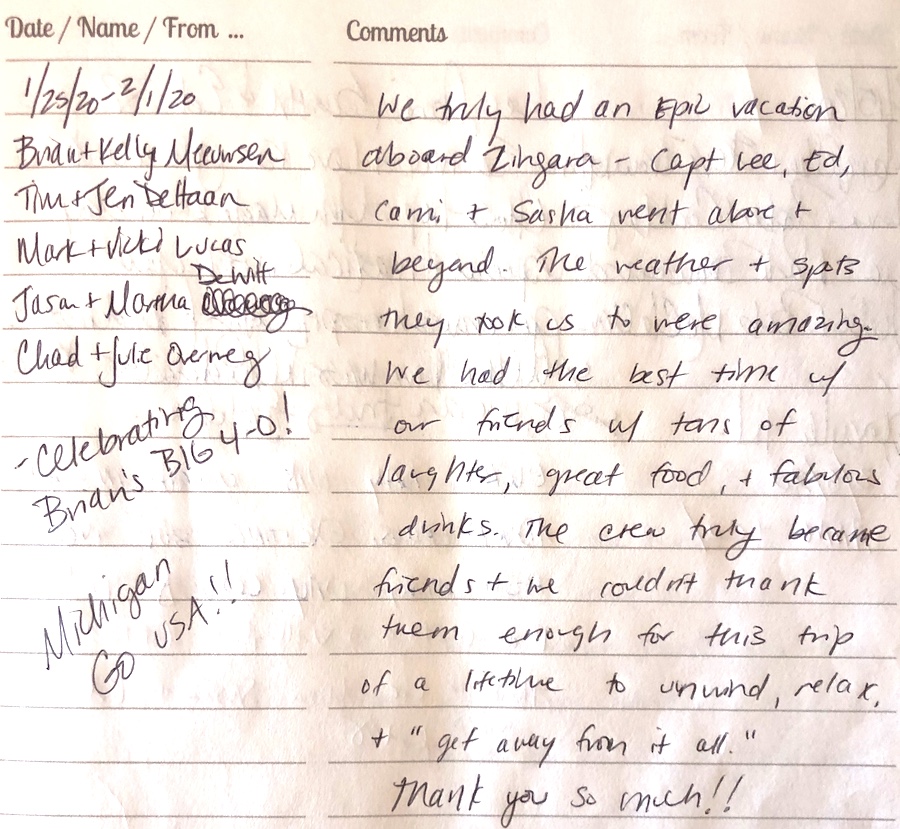 Date / Name / From ...
1/25/20 - 2/1/20
Brian + Kelly Meeuwsen
Tim + Jen DeHaan
Mark + Vicki Lucas
DeWitt
Jason + Martha
Chad + Julie Overweg
- Celebrating
Brian's BIG 4-0!
Michigan
Go USA!!
Comments
We truly had an Epic vacation
aboard Zingara - Capt Lee, Ed,
Cami, + Sasha went above +
beyond. The weather + spots
they took us to were amazing.
We had the best time w/
our friends w/ tons of
laughter, great food, + fabulous
drinks. The crew truly became
friends + we couldn't thank
them enough for this trip
of a lifetime to unwind, relax,
+ "get away from it all."
Thank you so much!!